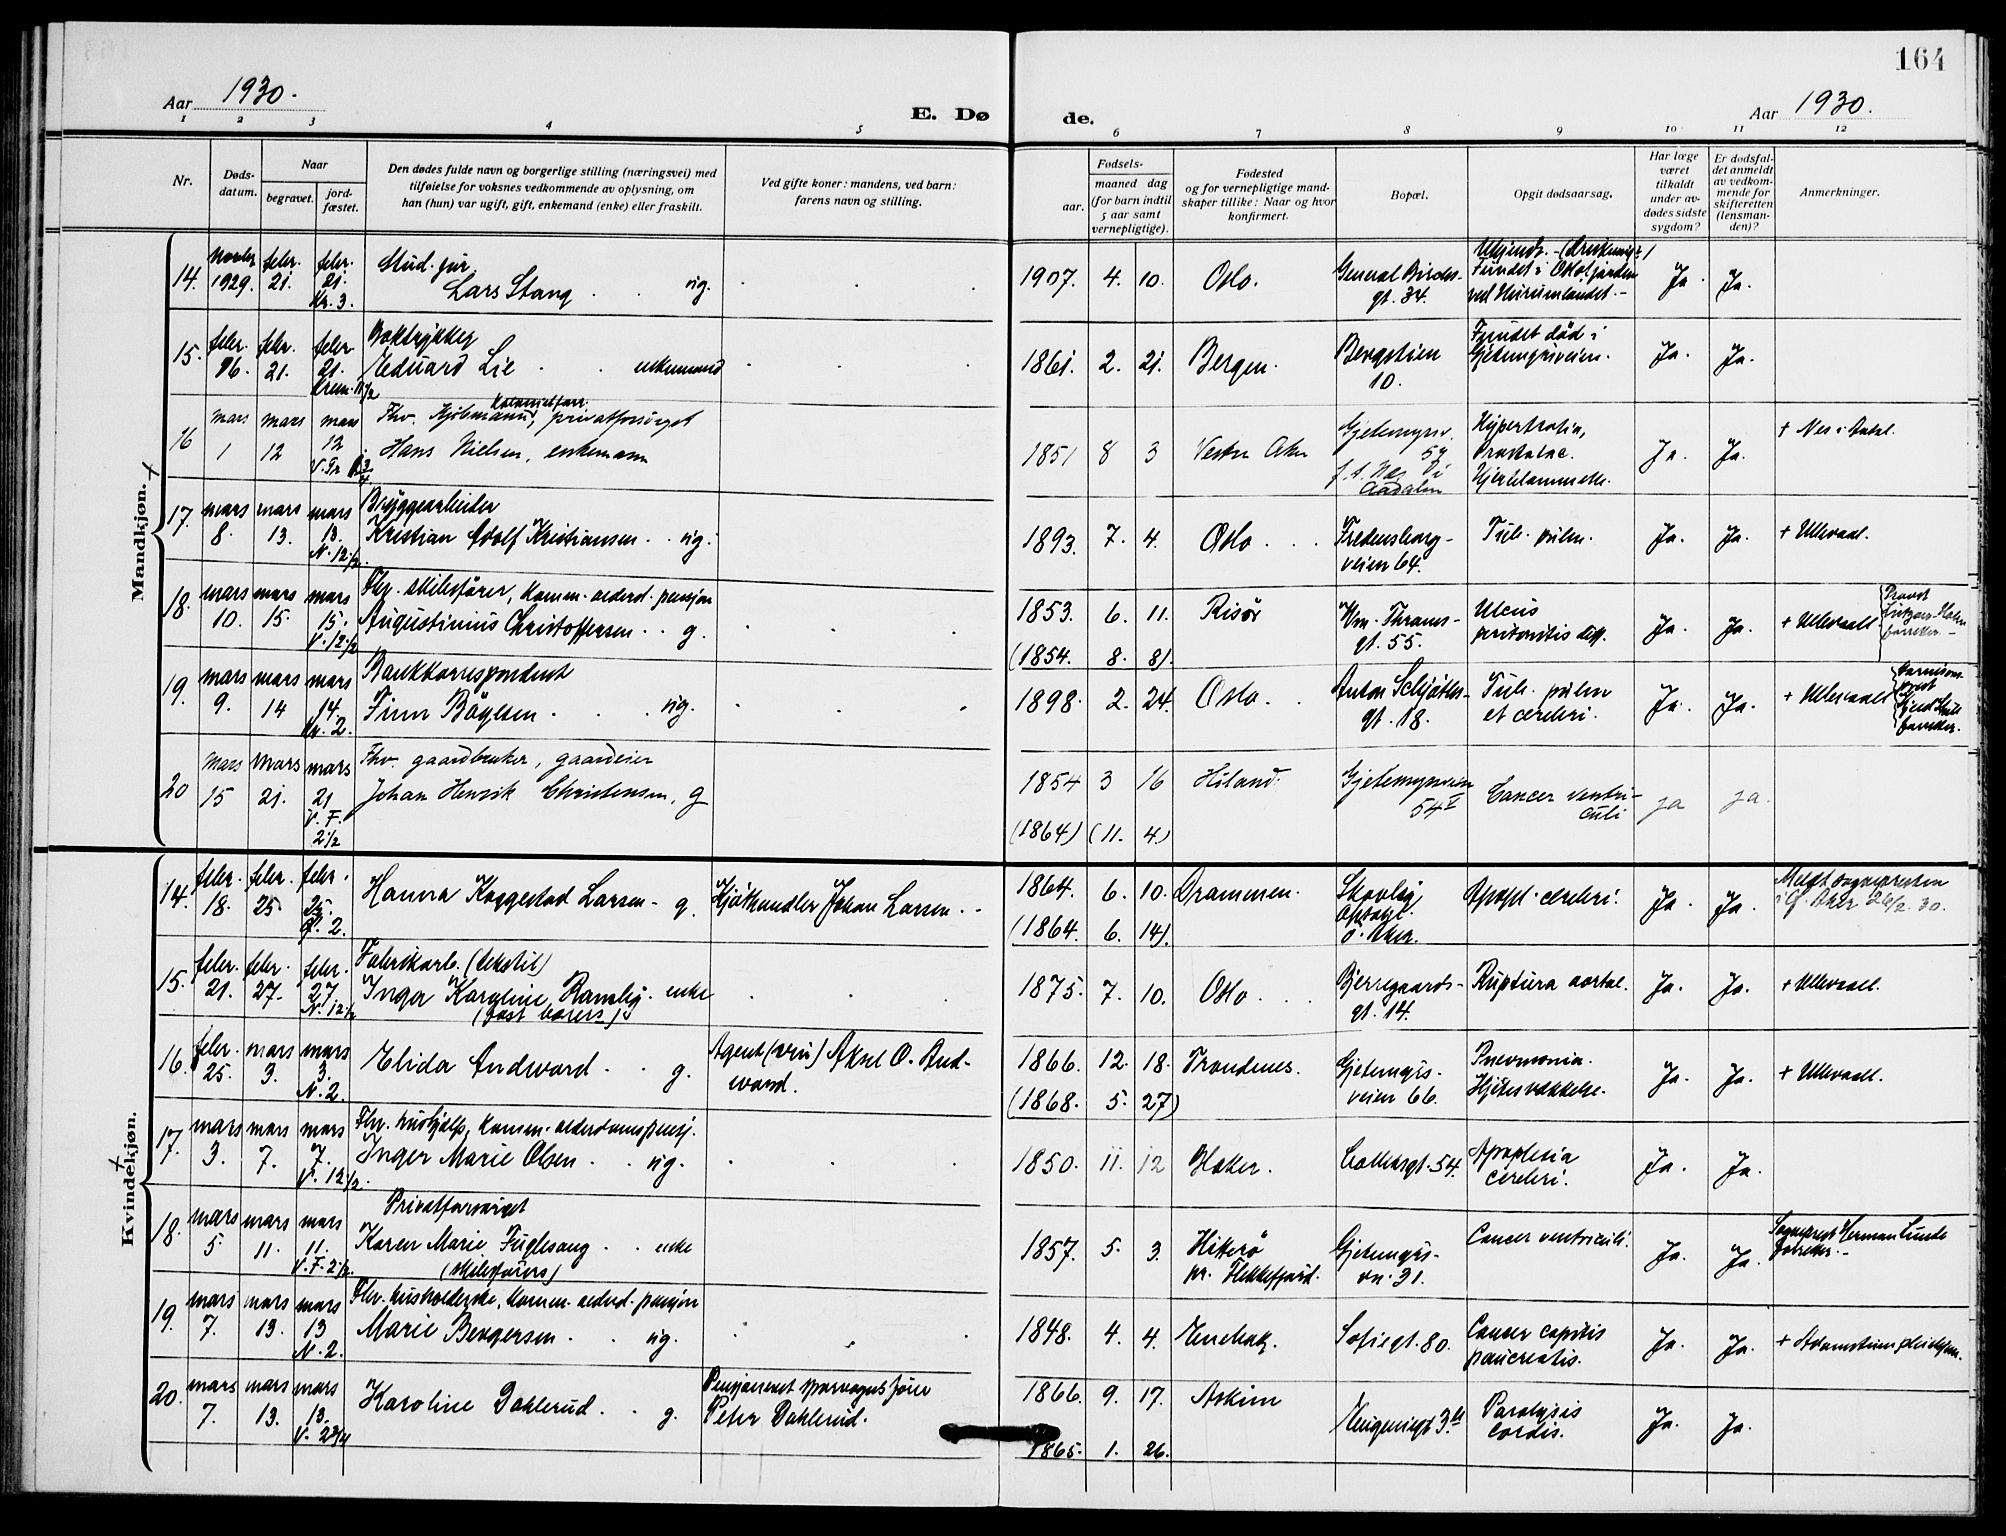 164
Aar 1930.
E. Dø
de.
Aar 1930.
1 2 3 4 5 6 7 8 9 10 11 12
Nr.
Døds-
datum.
Naar
begravet.
jord-
fæstet.
Den dødes fulde navn og borgerlige stilling (næringsvei) med
tilføielse for voksnes vedkommende av oplysning, om
han (hun) var ugift, gift, enkemand (enke) eller fraskilt.
Ved gifte koner: mandens, ved barn:
farens navn og stilling.
Fødsels-
aar.
maaned dag
(for barn indtil
5 aar samt
vernepligtige).
Fødested
og for vernepligtige mand-
skaper tillike: Naar og hvor
konfirmert.
Bopæl.
Opgit dødsaarsag.
Har læge
været
tilkaldt
under av-
dødes sidste
sygdom?
Er dødsfal-
det anmeldt
av vedkom-
mende for
skifteretten
(lensman-
den)?
Anmerkninger.
Mandkjøn.
14. 1929. febr. 21. febr. 21. Kr. 3.
Stud. jur.
Lars Stang ug.
1907. 4. 10. Oslo.
gt. 34.
Fundet i Oslofjorden
ved Hurumlandet.-
Ja. Ja.
15. febr. 16. febr. 21. febr. 21.
Boktrykker
Eduard Lie enkemand
1861. 2. 21. Bergen.
Bergstien
10.
Fundet død i
Gjetemyrsveien.
Ja. Ja.
16 mars 1 mars 12 mars 12
Fhv. privatforsørget
Hans Nielsen, enkemann
1851 8 3 Vestre Aker
Gjetemyrsv.
Aadalen
Hypertrofia,
Ja. Ja.
+ Nes i Aadal.
17. mars 8. mars 13. mars 13. N. 12 1/2.
Bryggearbeider
Kristian Adolf Kristiansen ug.
1893. 7. 4. Oslo
Fredensborg-
veien 64.
Tub. pulm.
Ja. Ja.
+ Ullevaal.
18. mars 10. mars 15. mars 15. V. 12 1/2
Fhv. skibsfører, komm. alderd. pensjon
Augustinius Christoffersen g.
1853. 6. 11. Risør
(1854. 8. 8).
gt. 55.
Ulcus
peritonitis diff.
Ja. Ja.
+ Ullevaal
Provst
19. mars 9. mars 14 mars 14. Kr. 2.
Bankkorrespondent
Finn Bøylsen ug.
1898. 2. 24. Oslo.
Anton Schjøths-
gt. 18.
Tub. pulm
et cerebri.
Ja. Ja.
+ Ullevaal
20 mars 15 mars 21. mars 21 V. F. 2 1/2
Fhv. gaardbruker, gaardeier
Johan Henrik Christensen, g
1854 3 16 Høland.
(1864) (11. 4.)
Gjetemyrsveien
54 I
Cancer ventri-
culi
ja ja.
Kvindekjøn.
14. febr. 18. febr. 25. febr. 25. 2.
Hanna Koggestad Larsen - g.
Kjøthandler Johan Larsen
1864. 6. 10. Drammen.
(1864. 6. 14).
Ø. Aker.
Apopl. cerebri.
Ja. Ja.
Meldt sognepresten
i Ø. Aker 26/2 30.
15. febr. 21. febr. 27. febr. 27. N. 12 1/2
Fabrikarb. (tekstil)
Inger Karoline Ramsby enke
1875. 7. 10. Oslo
Bjerregaards-
gt. 14.
Ruptura aortae.
Ja. Ja.
+ Ullevaal.
16. febr. 25. mars 3. mars 3. N. 2.
Elida Andvord g.
Agent (vin) Aksel O. And-
vord.
1866. 12. 18. Trondenes.
(1868. 5. 27)
Gjetemyrs-
veien 66.
Pneumonia.
Hjertesvækkelse.
Ja. Ja.
+ Ullevaal.
17. mars 3. mars 7. mars 7. V. 12 1/2.
Fhv. hushjelp, komm. alderdomspensj.
Inger Marie Olsen ug.
1850. 11. 12 Blaker.
Colletsgt. 54.
Apoplexia
cerebri.
Ja. Ja.
18. mars 5. mars 11. mars 11. V. F. 2 1/2.
Privatforsørget
Karen Marie Fuglesang enke
(skibsførers)
1857. 5. 3. Hitterø
pr. Flekkefjord.
Gjetemyrs-
vn. 31.
Cancer ventriculi.
Ja. Ja.
Sogneprest Herman Lunde
forretter.-
19. mars 7. mars 13. mars 13 N. 2.
Fhv. husholderske, komm. alderd. pensjon
Marie Bergersen ug.
1848. 4. 4. Enebak.
Sofiegt. 80.
Cancer capitis
pancreatis.
Ja. Ja.
20. mars 7. mars 13. mars 13. V. 2 3/4
Karoline Dahlerud g.
Pensjoneret sporvognsfører
Peter Dahlerud.
1866. 9. 17. Askim
1865. 1. 26.
Paralysis
cordis.
Ja. Ja.